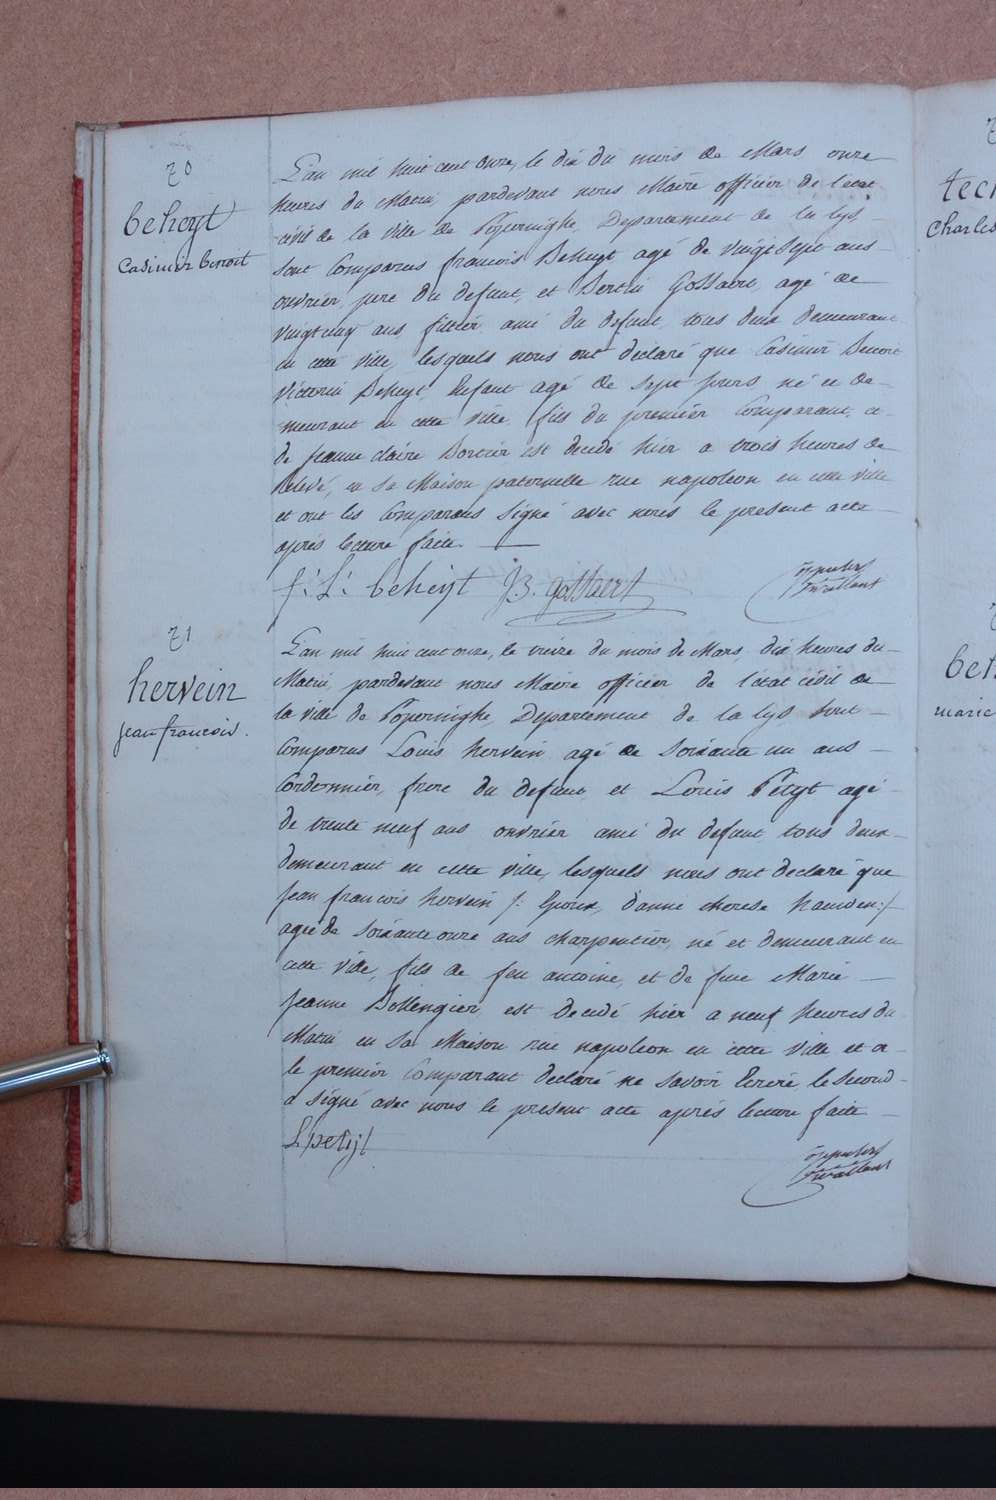 70
beheyt
Casimir benoit
L'an mil huit cent onze, le dix du mois de Mars onze
heures du Matin pardevant nous Maire officier de l'etat
civil de la ville de Poperinghe, Departement de la lys
sont Comparus francois Beheyt agé de vingt Sept ans
ouvrier, pere du defunt, et Bertin Gossaert, agé de
vingt ans fileur ami du defunt, tous deux demeurant
en cette ville, lesquels nous ont déclaré que Casimir Benoit
Victorin Beheyt, Enfant agé de Sept jours né et de-
meurant en cette ville, fils du premier Comparant, et
de Jeanne claire Bortier est decedé hier a trois heures de
Relevé, en Sa Maison paternelle rue napoleon en cette ville
et ont les Comparans Signé avec nous le present acte
après lecture faite
f: L: beheyt J.B. gossaert
71
hervein
jean francois.
L'an mil huit cent onze, le treize du mois de Mars, dix heures du
Matin, pardevant nous Maire officier de l'etat civil de
la ville de Poperinghe Departement de la lys sont
Comparus Louis hervein agé de Soixante un ans
Cordonnier, frere du defunt et Louis Petyt agé
de trente neuf ans ouvrier ami du defunt tous deux
demeurant en cette ville, lesquels nous ont declaré que
Jean francois hervein /: Epoux, d'anne therese :/
agé de Soixante onze ans charpentier, né et demeurant en
cette ville, fils de feu antoine, et de feue Marie
Jeanne Bollengier est decedé hier a neuf heures du
Matin en Sa Maison rue napoleon en cette ville et a
le premier Comparant declaré ne Savoir Ecrire le Second
a Signé avec nous le present acte après lecture faite
L petijt
tech
Charles
beh
marie